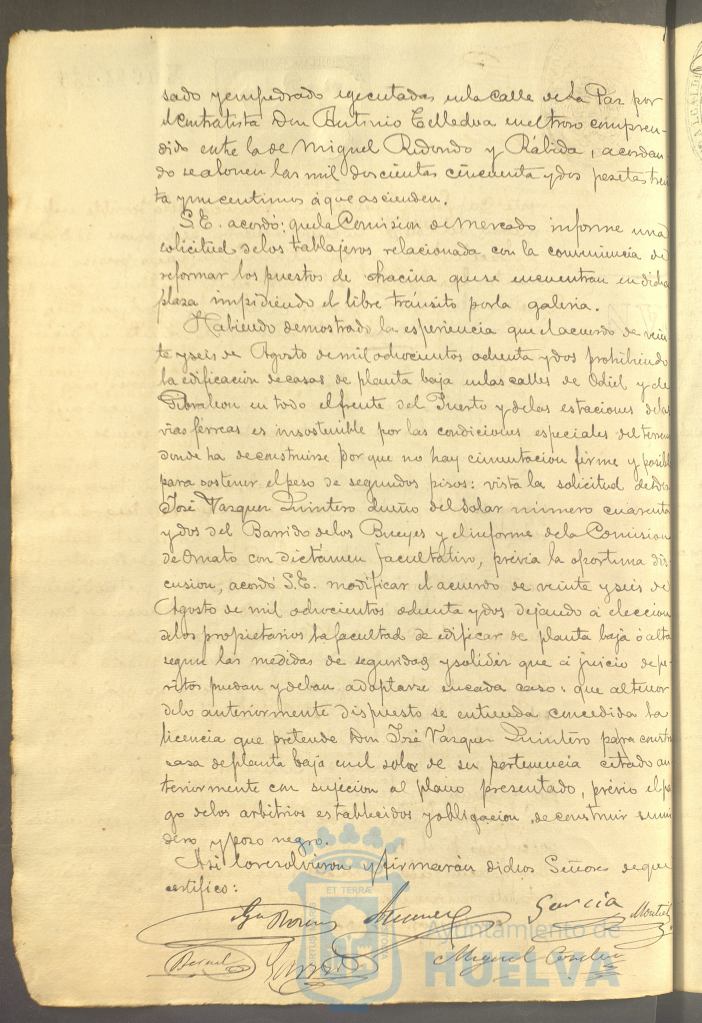 sado y empedrado ejecutadas en la calle de La Paz por
el contratista Don Antonio en el trozo compren-
dido entre la de Miguel Redondo y Rábida, acordan
do se abonen las mil doscientas cincuenta y dos pesetas trein
ta y un centimos á que ascienden.
S.E. acordó: que la Comision de Mercado informe una
solicitud de los tablajeros relacionada con la conveniencia de
reformar los puestos de chacina que se encuentran en dicha
plaza impidiendo el libre tránsito por la galeria.
Habiendo demostrado la esperiencia que el acuerdo de vein
te y seis de Agosto de mil ochocientos ochenta y dos prohibiendo
la edificacion de casas de planta baja en las calles de Odiel y de
Gibraleon en todo el frente del Puerto y de las estaciones de las
vias férreas es insostenible por las condiciones especiales del terreno
donde ha de construirse por que no hay cimentacion firme y posible
para sostener el peso de segundos pisos: vista la solicitud de Don
José Vazquez Quintero dueño del solar número cuarenta
y dos del Barrido de los Bueyes y el informe de la Comision
de Ornato con dictámen facultativo, prévia la oportuna dis
cusion, acordó S.E. modificar el acuerdo de veinte y seis de
Agosto de mil ochocientos ochenta y dos dejando á eleccion
de los propietarios la facultad de edificar de planta baja ó alta
segun las medidas de seguridad y solidez que á juicio de pe
ritos puedan y deban adaptarse en cada caso: que al tenor
de lo anteriormente dispuesto se entienda concedida la
licencia que pretende Don José Vazquez Quintero para constr
casa de planta baja en el solar de su pertenencia citado an
teriormente con sujecion al plano presentado, prévio el pa
go de los arbitrios establecidos y obligacion de construir sumi
dero y pozo negro.
Asi lo resolvieron y firmarán dichos Señores de que
certifico:
García
Bernel Miguel
Ayuntamiento de
HUELVA